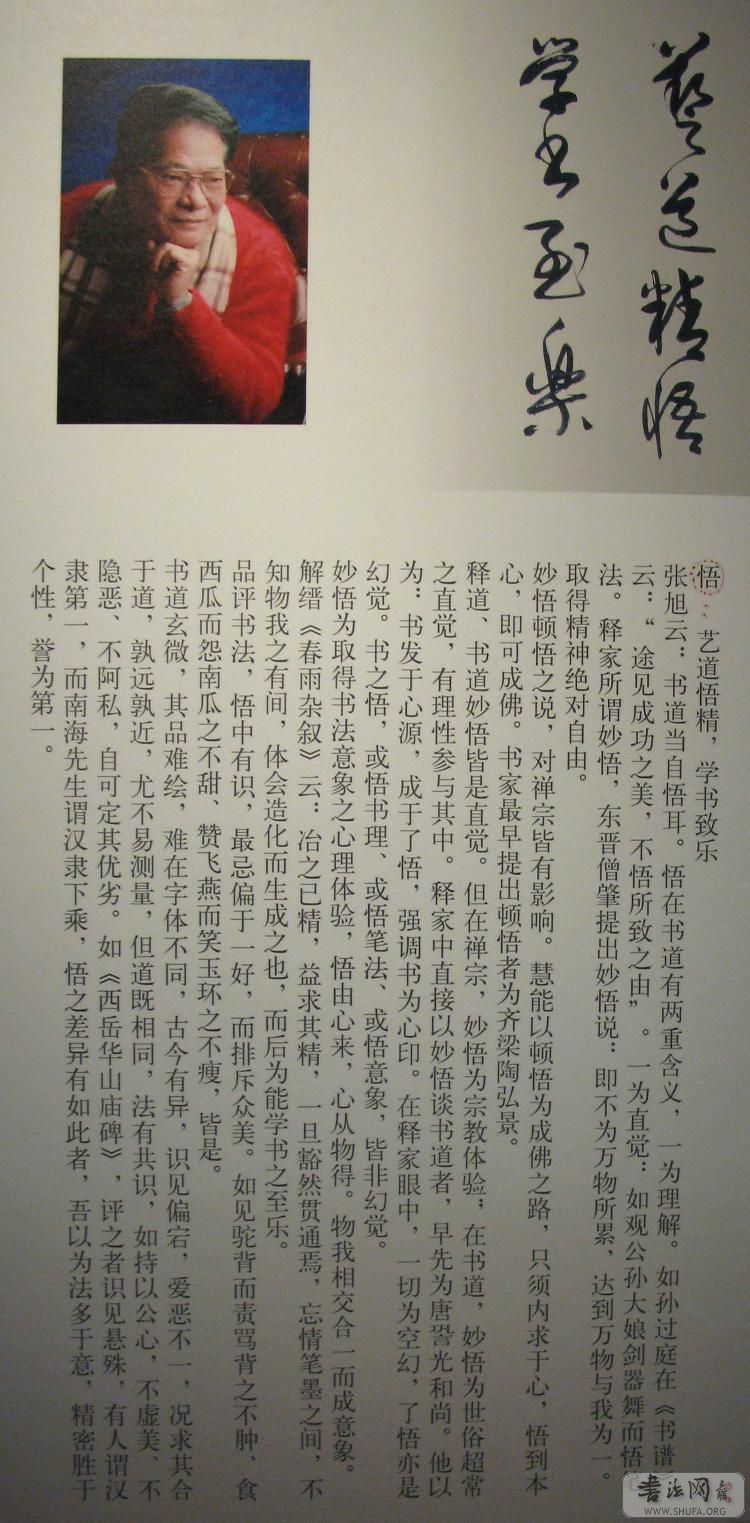 艺道精悟
学书至乐
悟：艺道悟精，学书致乐
张旭云：书道当自悟耳。悟在书道有两重含义，一为理解。如孙过庭在《书谱
云：“途见成功之美，不悟所致之由”。一为直觉：如观公孙大娘剑器舞而悟
法。释家所谓妙悟，东晋僧肇提出妙悟说：即不为万物所累，达到万物与我为一。
取得精神绝对自由。
妙悟顿悟之说，对禅宗皆有影响。慧能以顿悟为成佛之路，只须内求于心，悟到本
心，即可成佛。书家最早提出顿悟者为齐梁陶弘景。
释道、书道妙悟皆是直觉。但在禅宗，妙悟为宗教体验；在书道，妙悟为世俗超常
之直觉，有理性参与其中。释家中直接以妙悟谈书道者，早先为唐㖷光和尚。他以
为：书发于心源，成于了悟，强调书为心印。在释家眼中，一切为空幻，了悟亦是
幻觉。书之悟，或悟书理、或悟笔法、或悟意象，皆非幻觉。
妙悟为取得书法意象之心理体验，悟由心来，心从物得。物我相交合一而成意象。
解缙《春雨杂叙》云：冶之已精，益求其精，一旦豁然贯通焉，忘情笔墨之间，不
知物我之有间，体会造化而生成之也，而后为能学书之至乐。
品评书法，悟中有识，最忌偏于一好，而排斥众美。如见驼背而责骂背之不肿、食
西瓜而怨南瓜之不甜、赞飞燕而笑玉环之不瘦，皆是。
书道玄微，其品难绘，难在字体不同，古今有异，识见偏宕，爱恶不一，况求其合
于道，孰远孰近，尤不易测量，但道既相同，法有共识，如持以公心，不虚美、不
隐恶、不阿私，自可定其优劣。如《西岳华山庙碑》，评之者识见悬殊，有人谓汉
隶第一，而南海先生谓汉隶下乘，悟之差异有如此者，吾以为法多于意，精密胜于
个性，誉为第一。
书法网
WWW.SHUFA.ORG